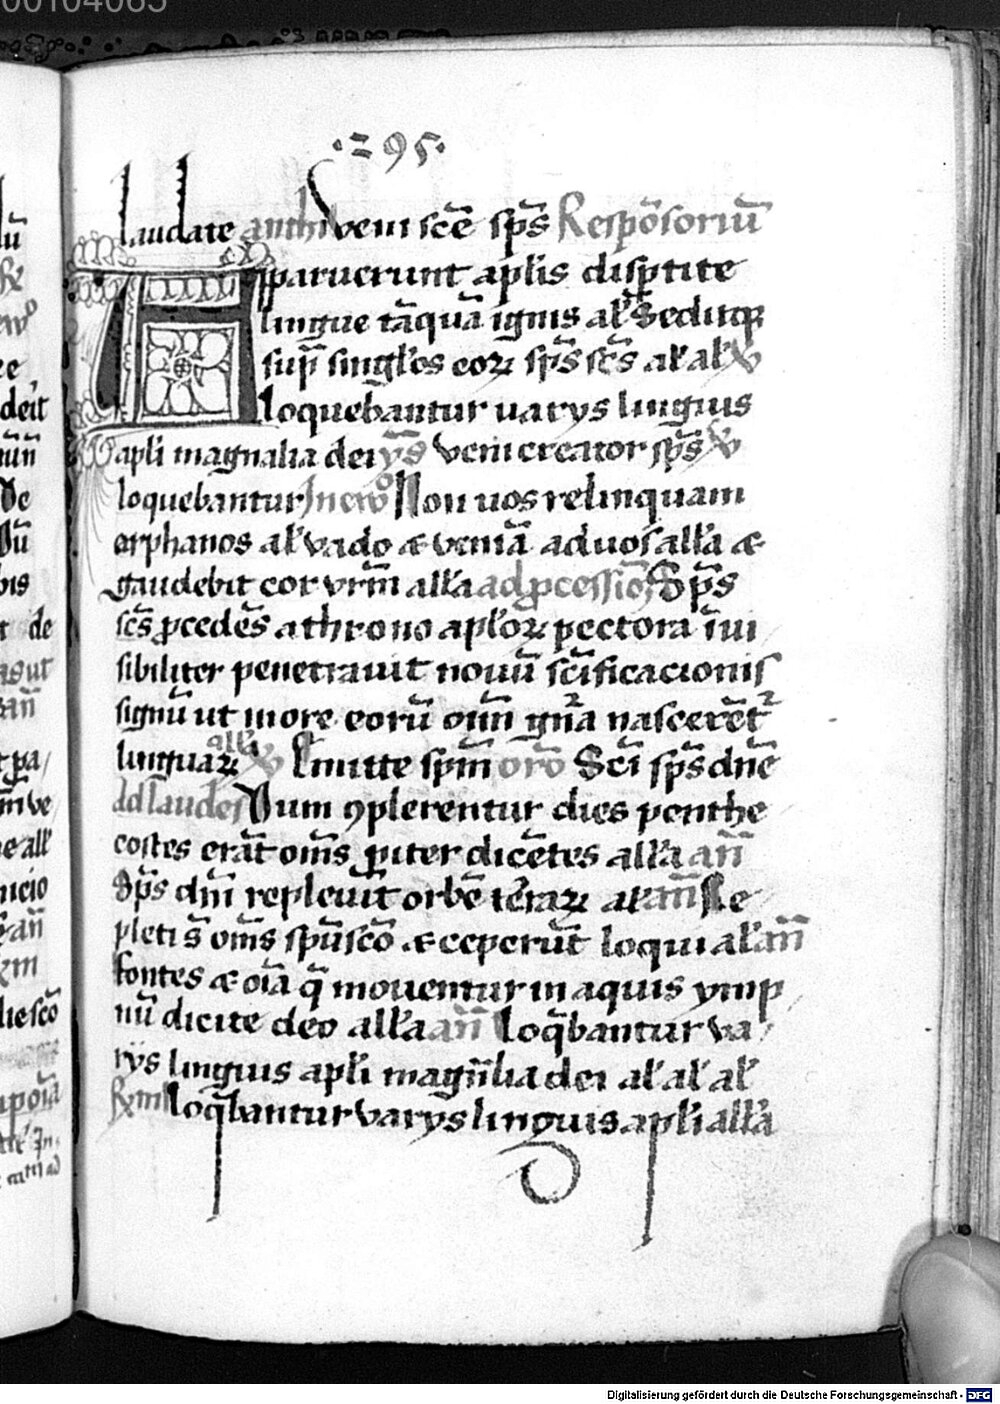 00104085
·295·
laudate anthi veni scē sp̄s Respōsoriū
Apparuerunt aplis disptite
lingue tāquā ignis al' Seditqꝫ
sup̄ singl'os eoꝝ sp̄s sc̄s al' al' ꝟ
loquebantur varys linguis
apli magnalia dei ys̄ veni creator sp̄s ꝟ
loquebantur In evo Non uos relinquam
orphanos al' vado & veniā ad uos all'a &
gaudebit cor vrm̄ all'a ad ꝓcessiōꝫ Sp̄s
sc̄s ꝓcedēs a throno apl'oꝝ pectora īui
sibiliter penetrauit nouū scīficacionis
signū ut in ore eorū om̄ gn̄a nascerēt
linguaꝝ all'a ꝟ Emitte spm̄ orō Sc̄i sp̄s dn̄e
ad laudes Dum ꝯplerentur dies penthe
costes erāt om̄s ꝑiter dicētes all'a an̄
Sp̄s dn̄i repleuit orbē terraꝝ al' an̄ Re
pleti s̄ om̄s spū scō & ceperūt loqui al' an̄
fontes & oīa q̄ mouentur in aquis ymp
nū dicite deo all'a an̄ loqbantur va
rys linguis apl'i magn̄lia dei al' al' al'
loqbantur varys linguis apl'i all'a
Digitalisierung gefördert durch die Deutsche Forschungsgemeinschaft - DFG